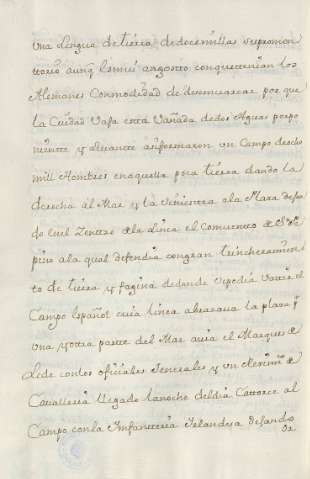 Una Lengua de tierra de doce millas u promon
ttorio aunq lomui angostto conquettenian los
Alemanes Conmodidad de desemuarcar por que
la Ciudad Vafa estta Vañada de dos Aguas porpo
nientte y Levantte informaron un Campo de ocho
mill Hombres en aquella poca tierra dando la
derecha al Mar y la Yzquierda a la Plaza dejan
do en el Zenttro de la linea el Comuentto de
pino ala qual defendia con gran ttrincheramien
to de tierra y fagina de donde Vattia el
Campo español cuia linea abrazaua la plaza
Una y ottra partte del Mar auia el Marques de
Lede con los ofiziales Jenerales y un de
Caualleria llegado lanoche del dia Cattorce al
Campo con la Infantteria Yrlandesa dejando